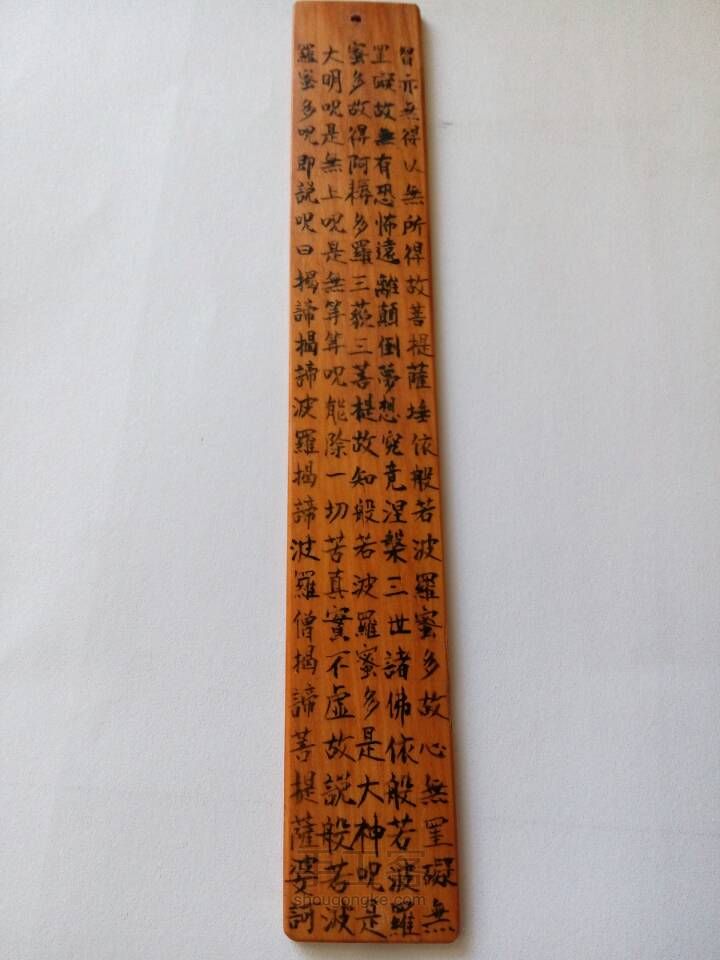 智亦無得以無所得故菩提薩埵依般若波羅蜜多故心無罣礙無
罣礙故無有恐怖遠離顛倒夢想究竟涅槃三世諸佛依般若波羅
蜜多故得阿耨多羅三藐三菩提故知般若波羅蜜多是大神呪是
大明呪是無上呪是無等等呪能除一切苦真實不虛故說般若波
羅蜜多呪即說呪曰揭諦揭諦波羅揭諦波羅僧揭諦菩提薩婆訶
手工客
shougongke.com